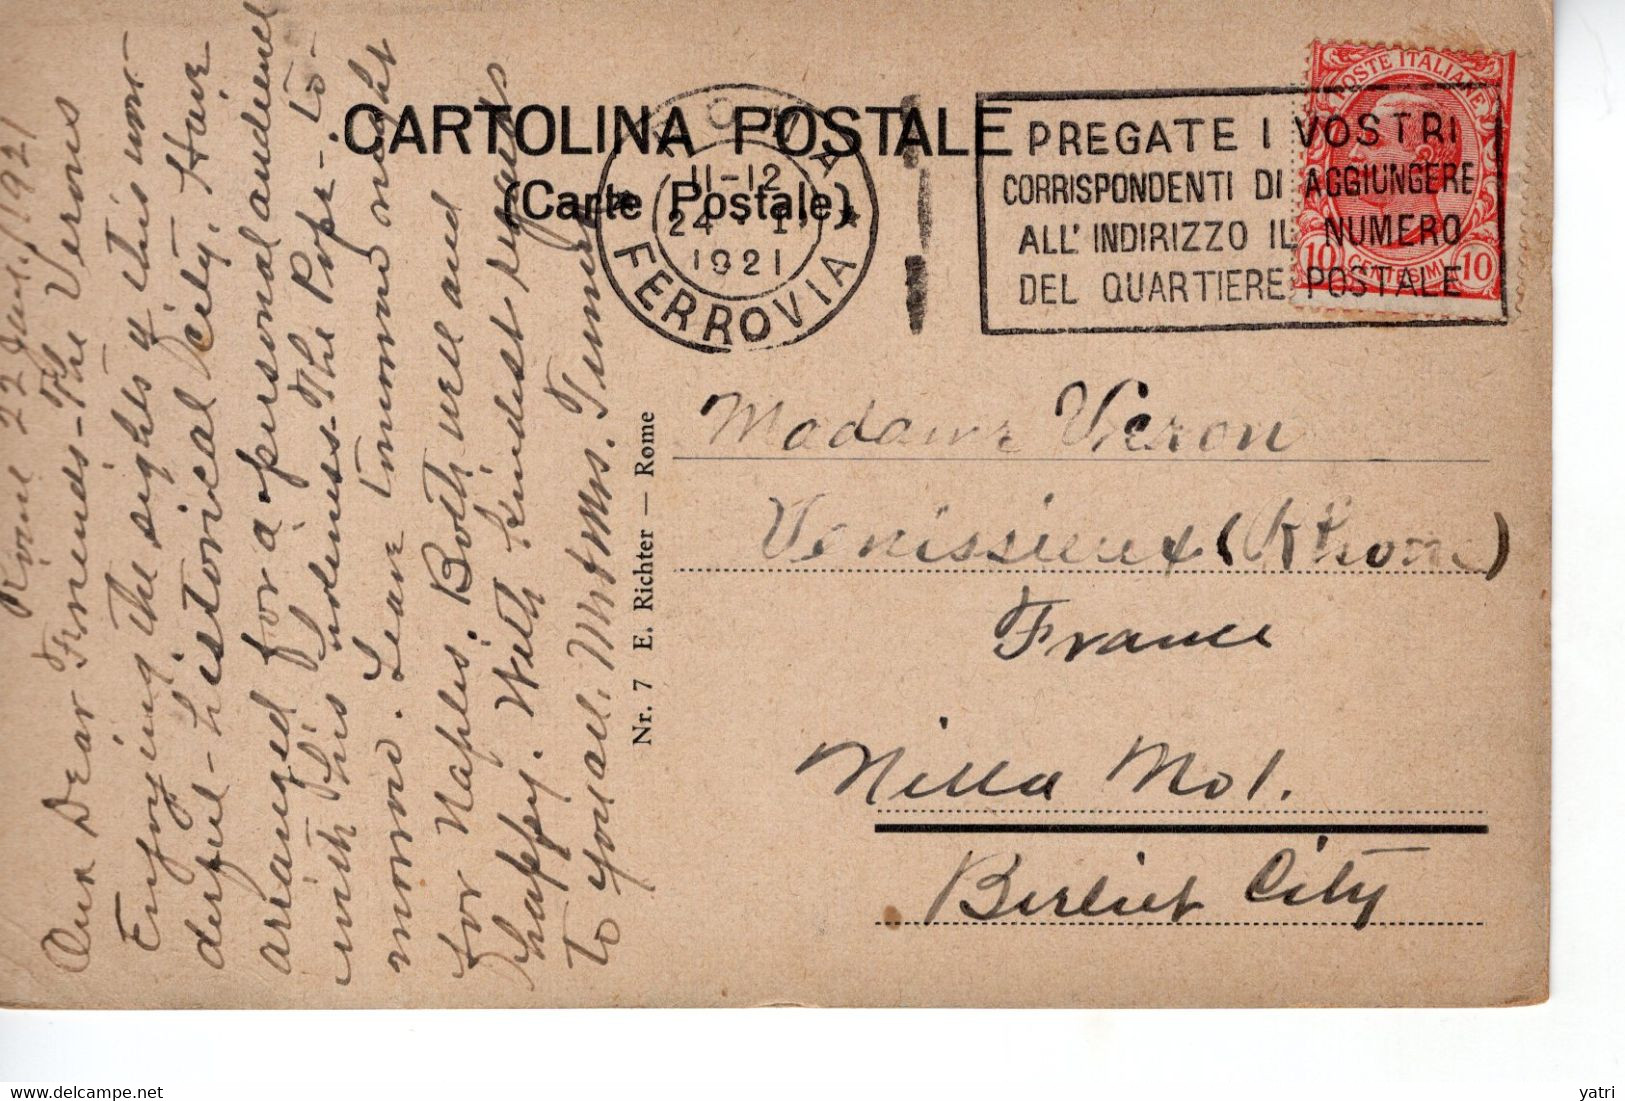 CARTOLINA POSTALE
(Carte Postale)
ROMA
11-12
24 · 1
1921
FERROVIA
PREGATE I VOSTRI
CORRISPONDENTI DI AGGIUNGERE
ALL' INDIRIZZO IL NUMERO
DEL QUARTIERE POSTALE
POSTE ITALIANE
10 CENTESIMI 10
Rome 22 Jany. 1921
Our Dear Friends - The Verons
Enjoying the sights of this won-
derful - historical city. Have
arranged for a personal audience
with his Holiness - The Pope - to-
morrow. Leave tomorrow night
for Naples. Both well and
happy. With kindest regards
to you all. Mr & Mrs. Turner
Nr. 7 E. Richter — Rome
Madame Veron
Venissieux (Rhone)
France
Villa No 1.
Berliet City
yatri